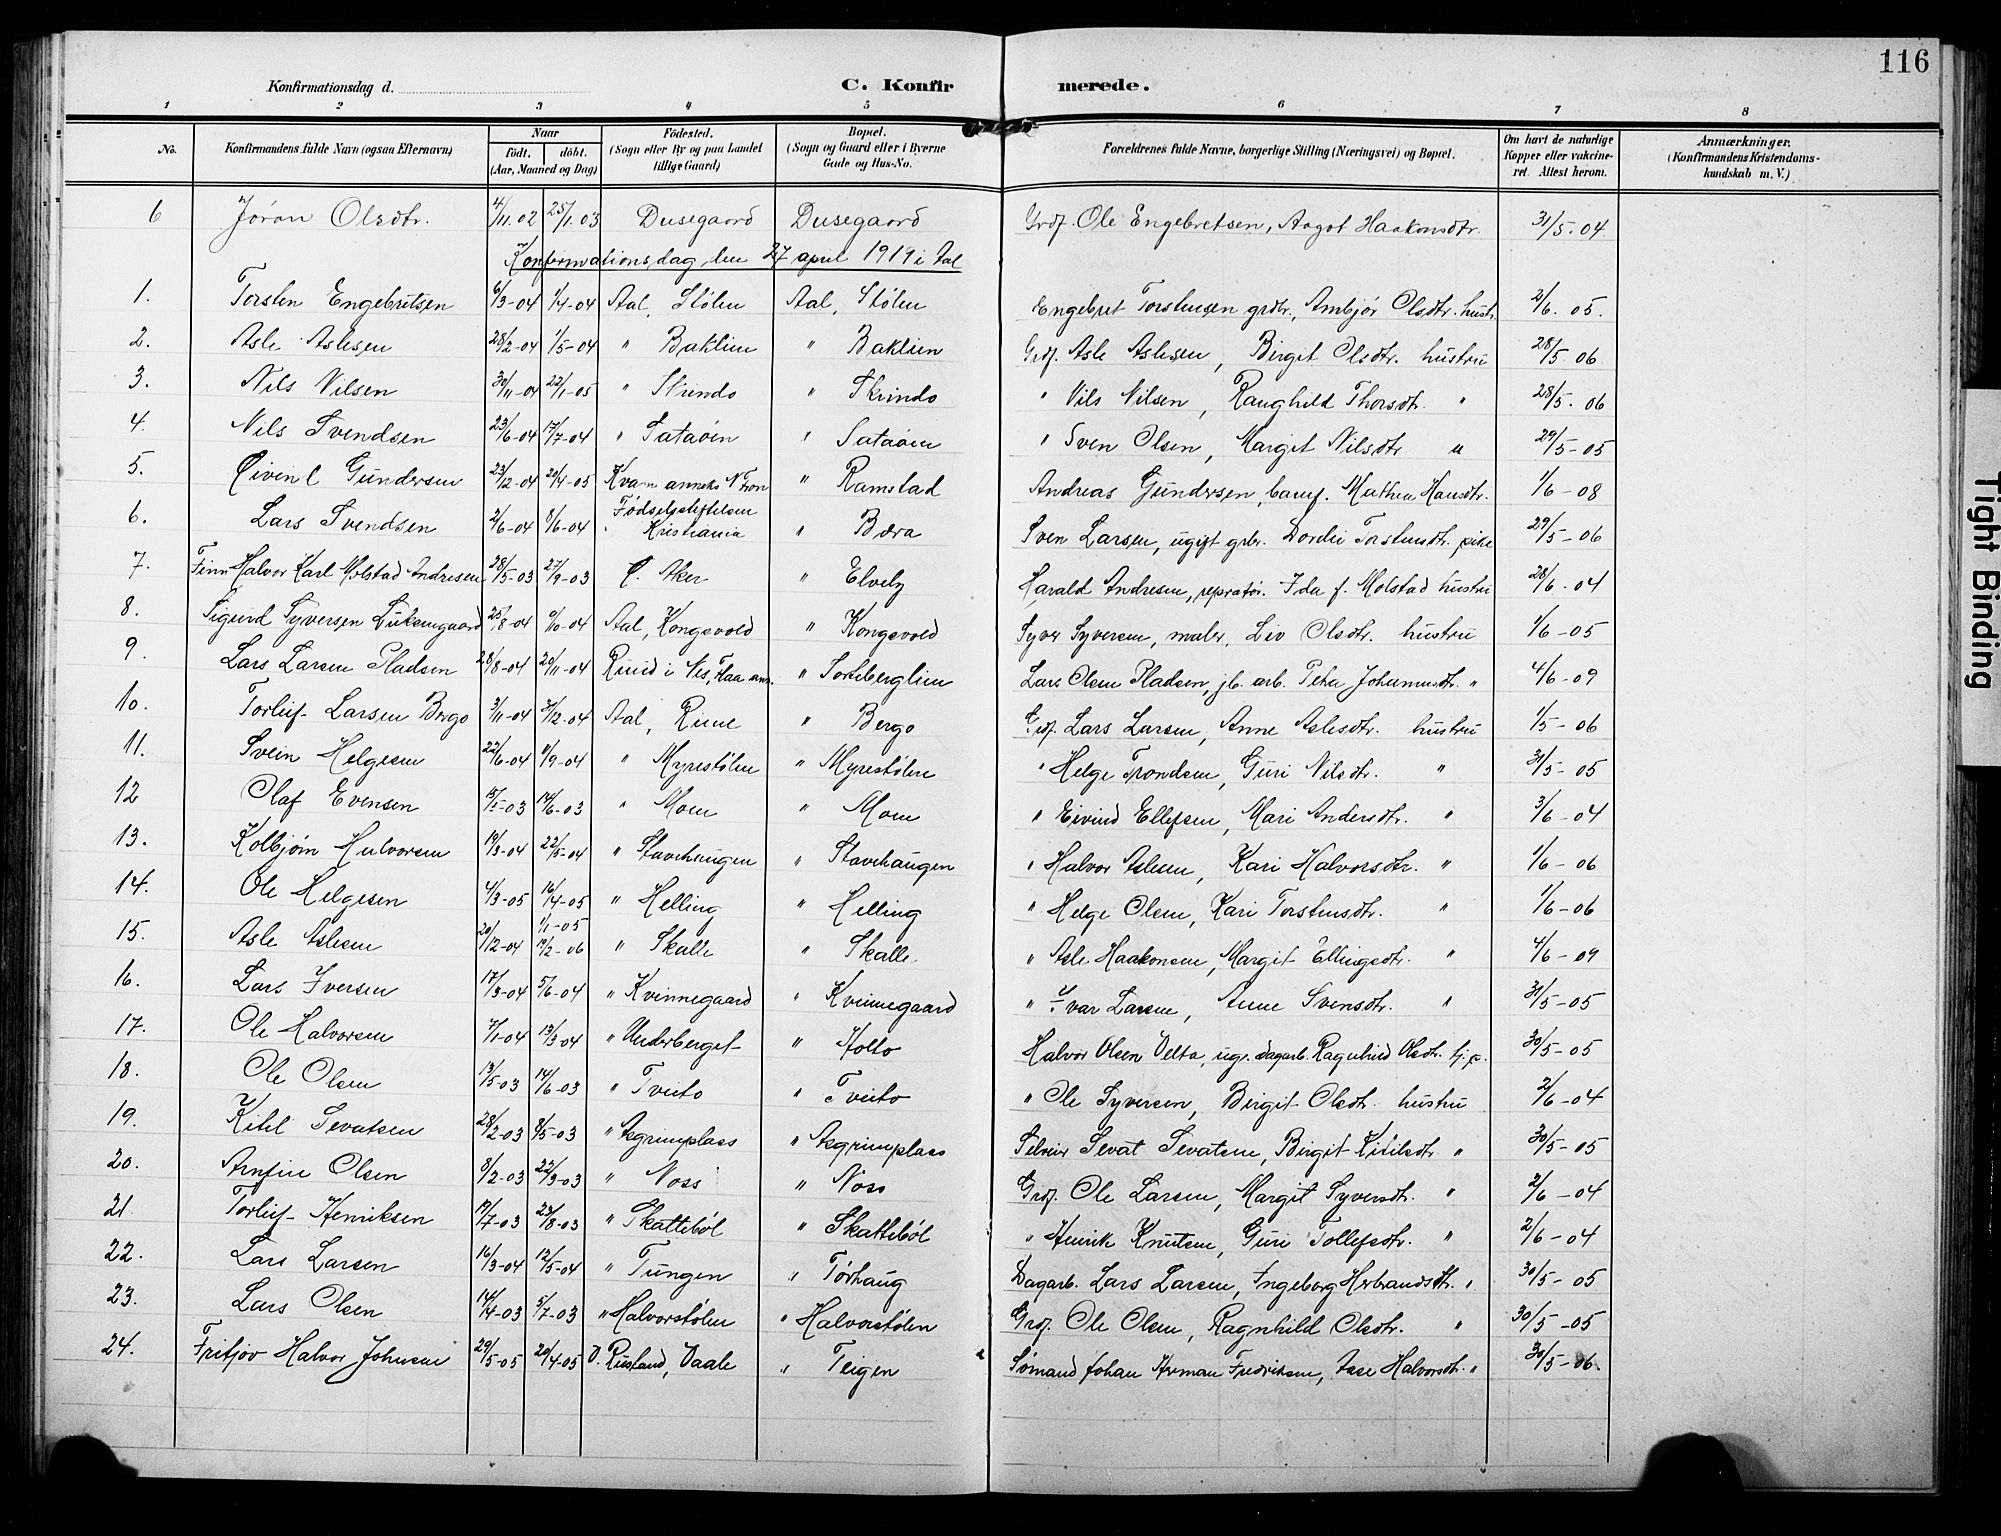 116
Konfirmationsdag d. C. Konfirmerede.
1 2 3 4 5 6 7 8
No. Konfirmandens fulde Navn (ogsaa Efternavn) Naar født. døbt. (Aar, Maaned og Dag) Fødested. (Sogn eller By og paa Landet tillige Gaard) Bopæl. (Sogn og Gaard eller i Byerne Gade og Hus-No. Forældrenes fulde Navne, borgerlige Stilling (Næringsvei) og Bopæl. Om havt de naturlige Kopper eller vakcineret. Attest herom. Anmærkninger. (Konfirmandens Kristendomskundskab m. V.)
6 Jøran Olsdtr. 4/11.02 25/1.03 Dusegaard Dusegaard Grdf. Ole Engebretsen, Aagot Haakonsdtr. 31/5-04
Konfirmationsdag den 27 april 1919 i Aal
1. Torsten Engebretsen 6/3-04 1/4-04 Aal, Stølen Aal, Stølen Engebret Torstensen grdbr., Ambjør Olsdtr. hustr. 2/6. 05.
2. Asle Aslesen 28/2-04 1/5-04 " Baklien " Baklien Grdf. Asle Aslesen, Birgit Olsdtr. hustru 28/5 06
3. Nils Nilsen 30/11-04 22/1-05 " Skrindo " Skrindo " Nils Nilsen, Raughild Thorsdtr. " 28/5. 06
4. Nils Svendsen 23/6-04 17/7-04 " Sataøen " Sataøen " Sven Olsen, Margit Nilsdtr " 29/5-05
5. Eivind Gundersen 23/12-04 20/4-05 Kvam anneks N. Fron " Ramstad Andreas Gundersen, banf. Mathea Hansdtr. 1/6-08
6. Lars Svendsen 2/6-04 8/6-04 Fødselsstiftelsen Kristiania " Bæra Sven Larsen, ugift grbr. Dordei Torstensdtr. pike 29/5-06
7. Finn Halvor Karl Molstad Andresen 28/5-03 27/9-03 Ø. Aker " Elvely Harald Andresen, repratør. Ida f. Molstad hustru 28/6-04
8. Sigurd Syversen Luksengaard 25/8-04 9/10-04 Aal, Kongsvold " Kongsvold Syver Syversen, maler, Liv Olsdtr. hustru 1/6-05
9. Lars Larsen Pladsen 28/8-04 20/11-04 Ruud i Nes, Flaa an. " Sorteberglien Lars Olsen Pladsen, jb. arb. Petra Johannesdtr. " 4/6-09
10. Torleif Larsen Bergo 3/11-04 2/12-04 Aal, Rime " Bergo Grdf. Lars Larsen, Anne Aslesdtr. hustru 1/5-06
11. Svein Helgesen 22/6-04 11/9-04 " Myrestølen " Myrestølen " Helge Trondsen, Guri Nilsdtr. " 31/5-05
12 Olaf Evensen 15/5-03 14/6-03 " Moen " Moen " Eivind Ellefsen, Mari Andersdtr. " 3/6-04
13. Kolbjørn Halvorsen 19/3-04 22/5-04 " Stavehaugen " Stavehaugen " Halvor Aslesen, Kari Halvorsdtr. " 1/6-06
14. Ole Helgesen 4/3-05 16/4-05 " Helling " Helling " Helge Olsen, Kari Torstensdtr. " 1/6-06
15. Asle Aslesen 20/12-04 1/1-05 19/2-06 " Skalle " Skalle " Asle Haakonsen, Margit Ellingsdtr. " 4/6-09
16. Lars Iversen 17/3-04 5/6-04 " Kvinnegaard " Kvinnegaard " Ivar Larsen, Anne Svensdtr. " 31/5-05
17. Ole Halvorsen 7/1-04 13/3-04 " Underberget " Holto Halvor Olsen Velta, ugr. dagarb. Ragnhild Olsdtr. tj.p. 30/5-05
18. Ole Olsen 13/5-03 14/6-03 " Tveito " Tveito " Ole Syversen, Birgit Olsdtr. hustru 2/6-04
19. Kitil Sevatsen 28/2-03 8/5-03 " Asgrimplass " Asgrimplass Selveier Sevat Sevatsen, Birgit Kitilsdtr " 30/5-05
20. Arnfin Olsen 8/2-03 22/3-03 " Noss " Noss Grdf. Ole Larsen, Margit Syversdtr. " 2/6-04
21. Torleif Henriksen 19/7-03 23/8-03 " Skattebøl " Skattebøl " Henrik Knutsen, Guri Tollefsdtr. " 2/6-04
22. Lars Larsen 16/3-04 12/5-04 " Tungen " Tørhaug Dagarb. Lars Larsen, Ingeborg Herbrandsdtr. " 30/5-05
23. Lars Olsen 14/4-03 5/7-03 " Halvorstølen " Halvorstølen Grdf. Ole Olsen, Ragnhild Olsdtr. " 30/5-05
24. Fritjov Halvor Johnsen 29/5-05 20/4-05 Rustand, Vaale " Teigen Sømand Johan Herman Fredriksen, Aase Halvorsdtr. " 30/5-06.
Tight Binding